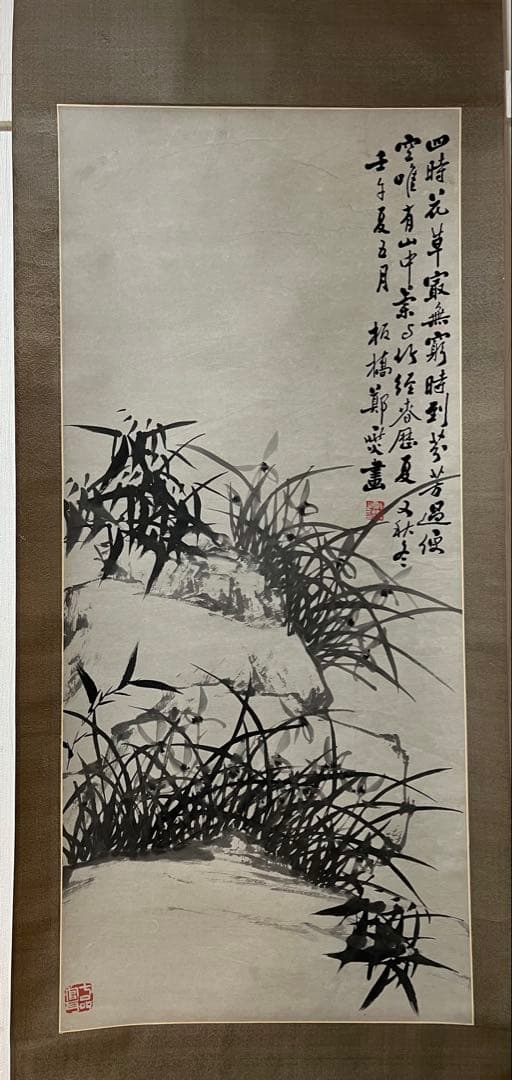 四時花草最無窮時到芬芳過便
空唯有山中蘭与竹經春歷夏又秋冬
壬午夏五月 板橋鄭燮畫
七品官耳